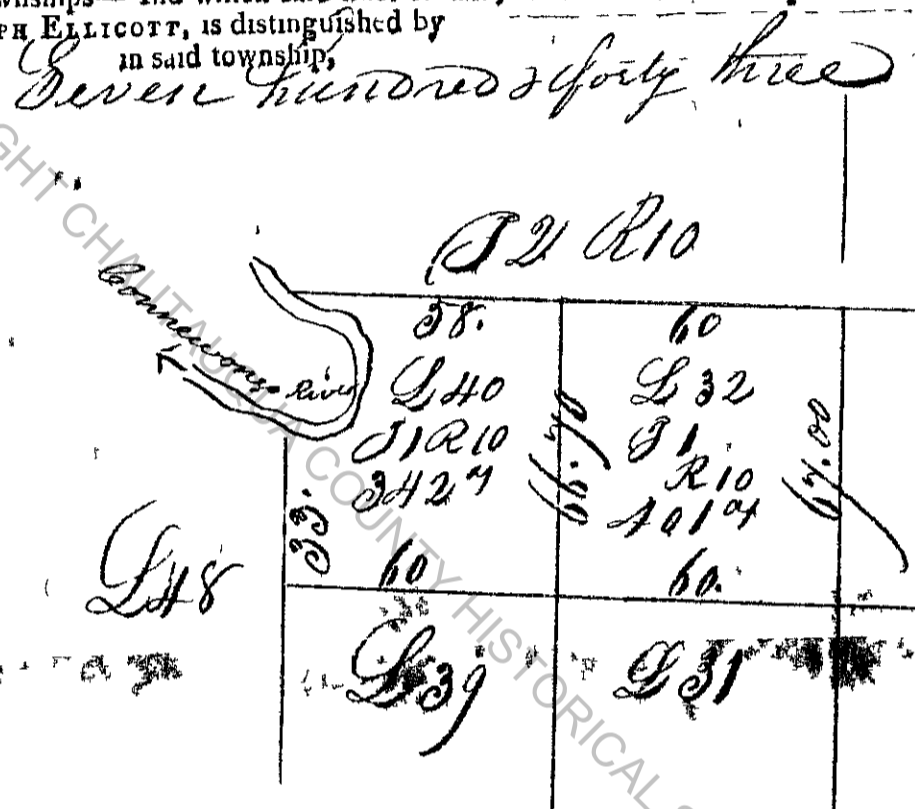 PH ELLICOTT, is distinguished by
in said township,
Seven hundred & forty three
T 2 R10
Connewongo River
58.
L 40
T1 R10
342 a
60
33.
60
L 32
T 1
R10
401 a
60.
67.00
L48
L 39
L 31
GHT CHAUTAUQUA COUNTY HISTORICAL S